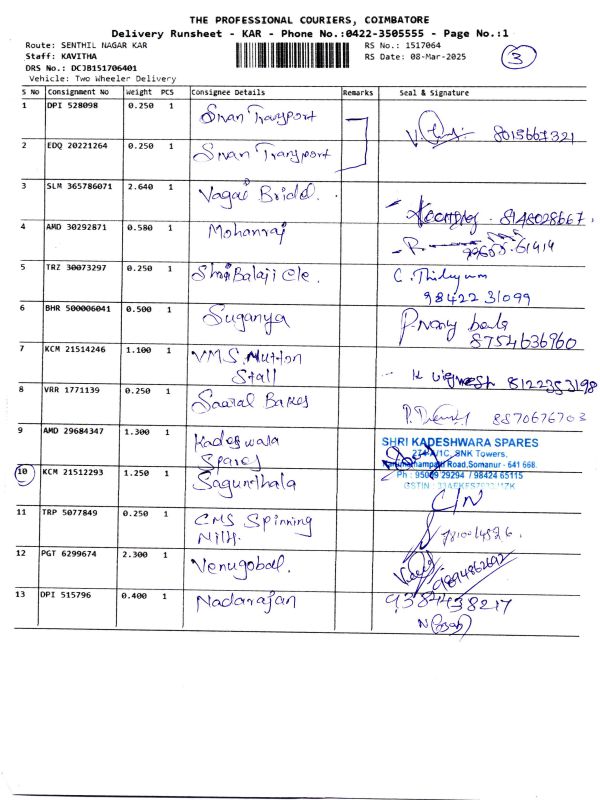 THE PROFESSIONAL COURIERS, COIMBATORE
Delivery Runsheet - KAR - Phone No.:0422-3505555 - Page No.:1
Route: SENTHIL NAGAR KAR
RS No.: 1517064
3
Staff: KAVITHA
RS Date: 08-Mar-2025
DRS No.: DCJB151706401
Vehicle: Two Wheeler Delivery
S No Consignment No Weight PCS Consignee Details Remarks Seal & Signature
1 DPI 528098 0.250 1 Sivan Transport 8015667321
2 EDQ 20221264 0.250 1 Sivan Transport
3 SLM 365786071 2.640 1 Vagai Bridal. 8148028667.
4 AMD 30292871 0.580 1 Mohanraj
5 TRZ 30073297 0.250 1 Shri Balaji Cle. 98422 31099
6 BHR 500006041 0.500 1 Suganya 8754636960
7 KCM 21514246 1.100 1 V.M.S. Mutton Stall K Vignesh 8122353198
8 VRR 1771139 0.250 1 Saaral Bakes 8870676703
9 AMD 29684347 1.300 1 Kadeswala Spares
SHRI KADESHWARA SPARES
SNK Towers,
Road, Somanur - 641 668.
98424 65115
10 KCM 21512293 1.250 1 Sagunthala C/N
11 TRP 5077849 0.250 1 CMS Spinning Mill.
12 PGT 6299674 2.300 1 Venugobal. 9894862692
13 DPI 515796 0.400 1 Nadarajan 9384438217